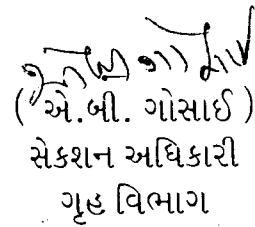 ( એ.બી. ગોસાઈ )
સેકશન અધિકારી
ગૃહ વિભાગ